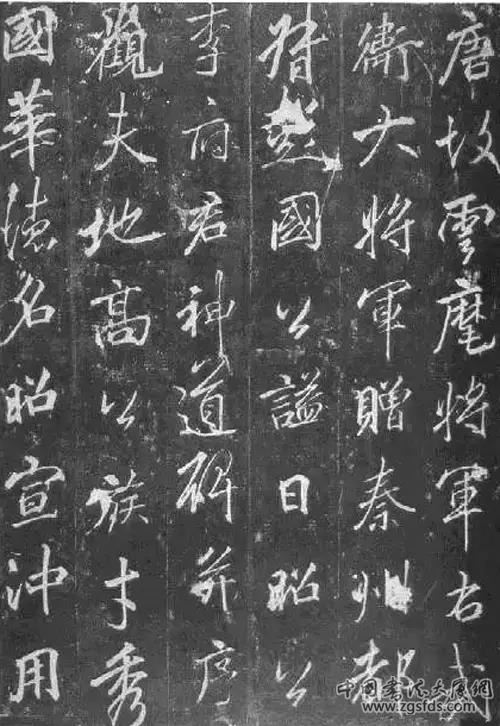 唐故雲麾將軍右武
衛大將軍贈秦州都
督彭國公謚曰昭公
李府君神道碑并序
觀夫地高公族才秀
國華德名昭宣沖用
www.zgsfds.com